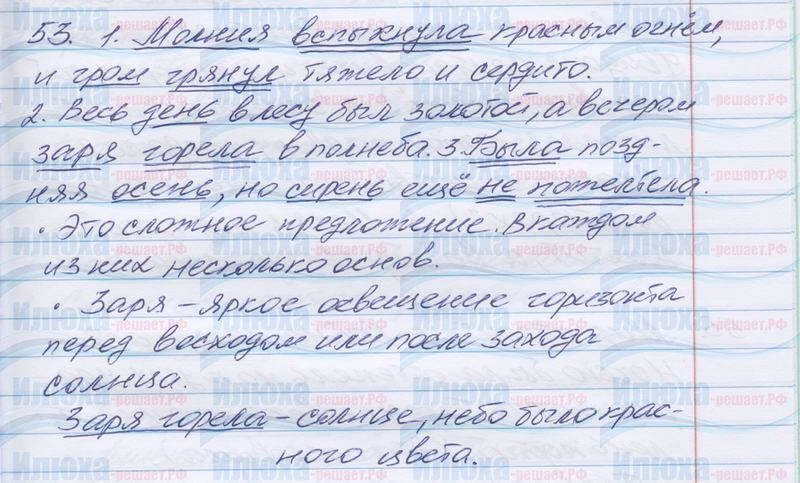 53. 1. Молния вспыхнула красным огнём,
и гром грянул тяжело и сердито.
2. Весь день в лесу был золотой, а вечером
заря горела в полнеба. 3. Была позд-
няя осень, но сирень ещё не пожелтела.
• Это сложное предложение. В каждом
из них несколько основ.
• Заря – яркое освещение горизонта
перед восходом или после захода
солнца.
Заря горела – солнце, небо было крас-
ного цвета.